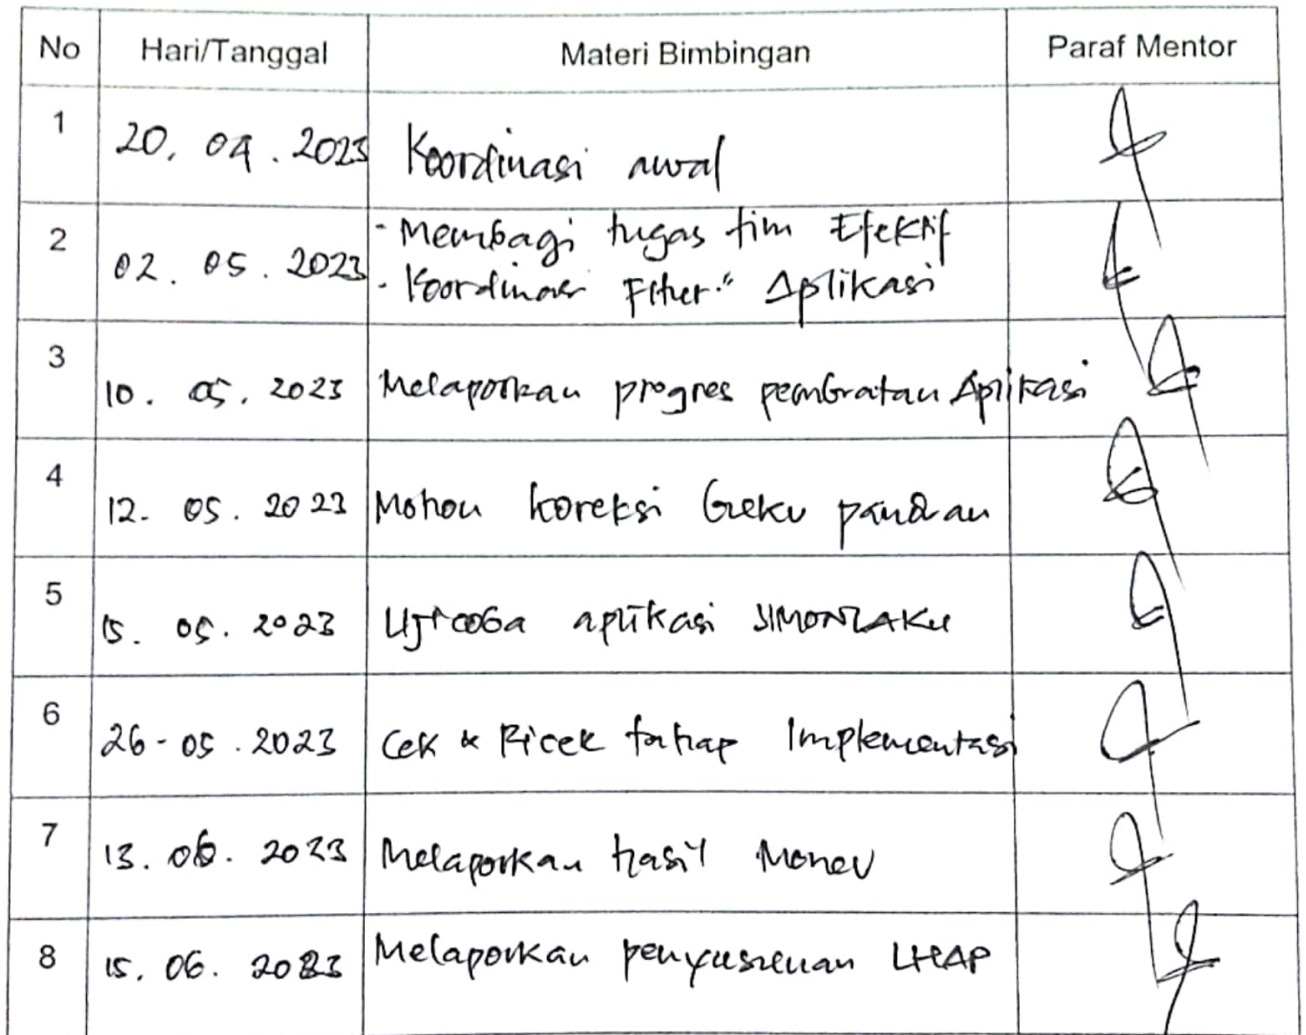 No Hari/Tanggal Materi Bimbingan Paraf Mentor
1 20. 04. 2023 Koordinasi awal
2 02. 05. 2023 - Membagi tugas tim Efektif
- Koordinasi Fitur" Aplikasi
3 10. 05. 2023 Melaporkan progres pembuatan Aplikasi
4 12. 05. 2023 Mohon koreksi buku panduan
5 15. 05. 2023 Ujicoba aplikasi SIMONLAKU
6 26-05. 2023 Cek & Ricek tahap Implementasi
7 13. 06. 2023 Melaporkan hasil Monev
8 15. 06. 2023 Melaporkan penyusunan LHAP